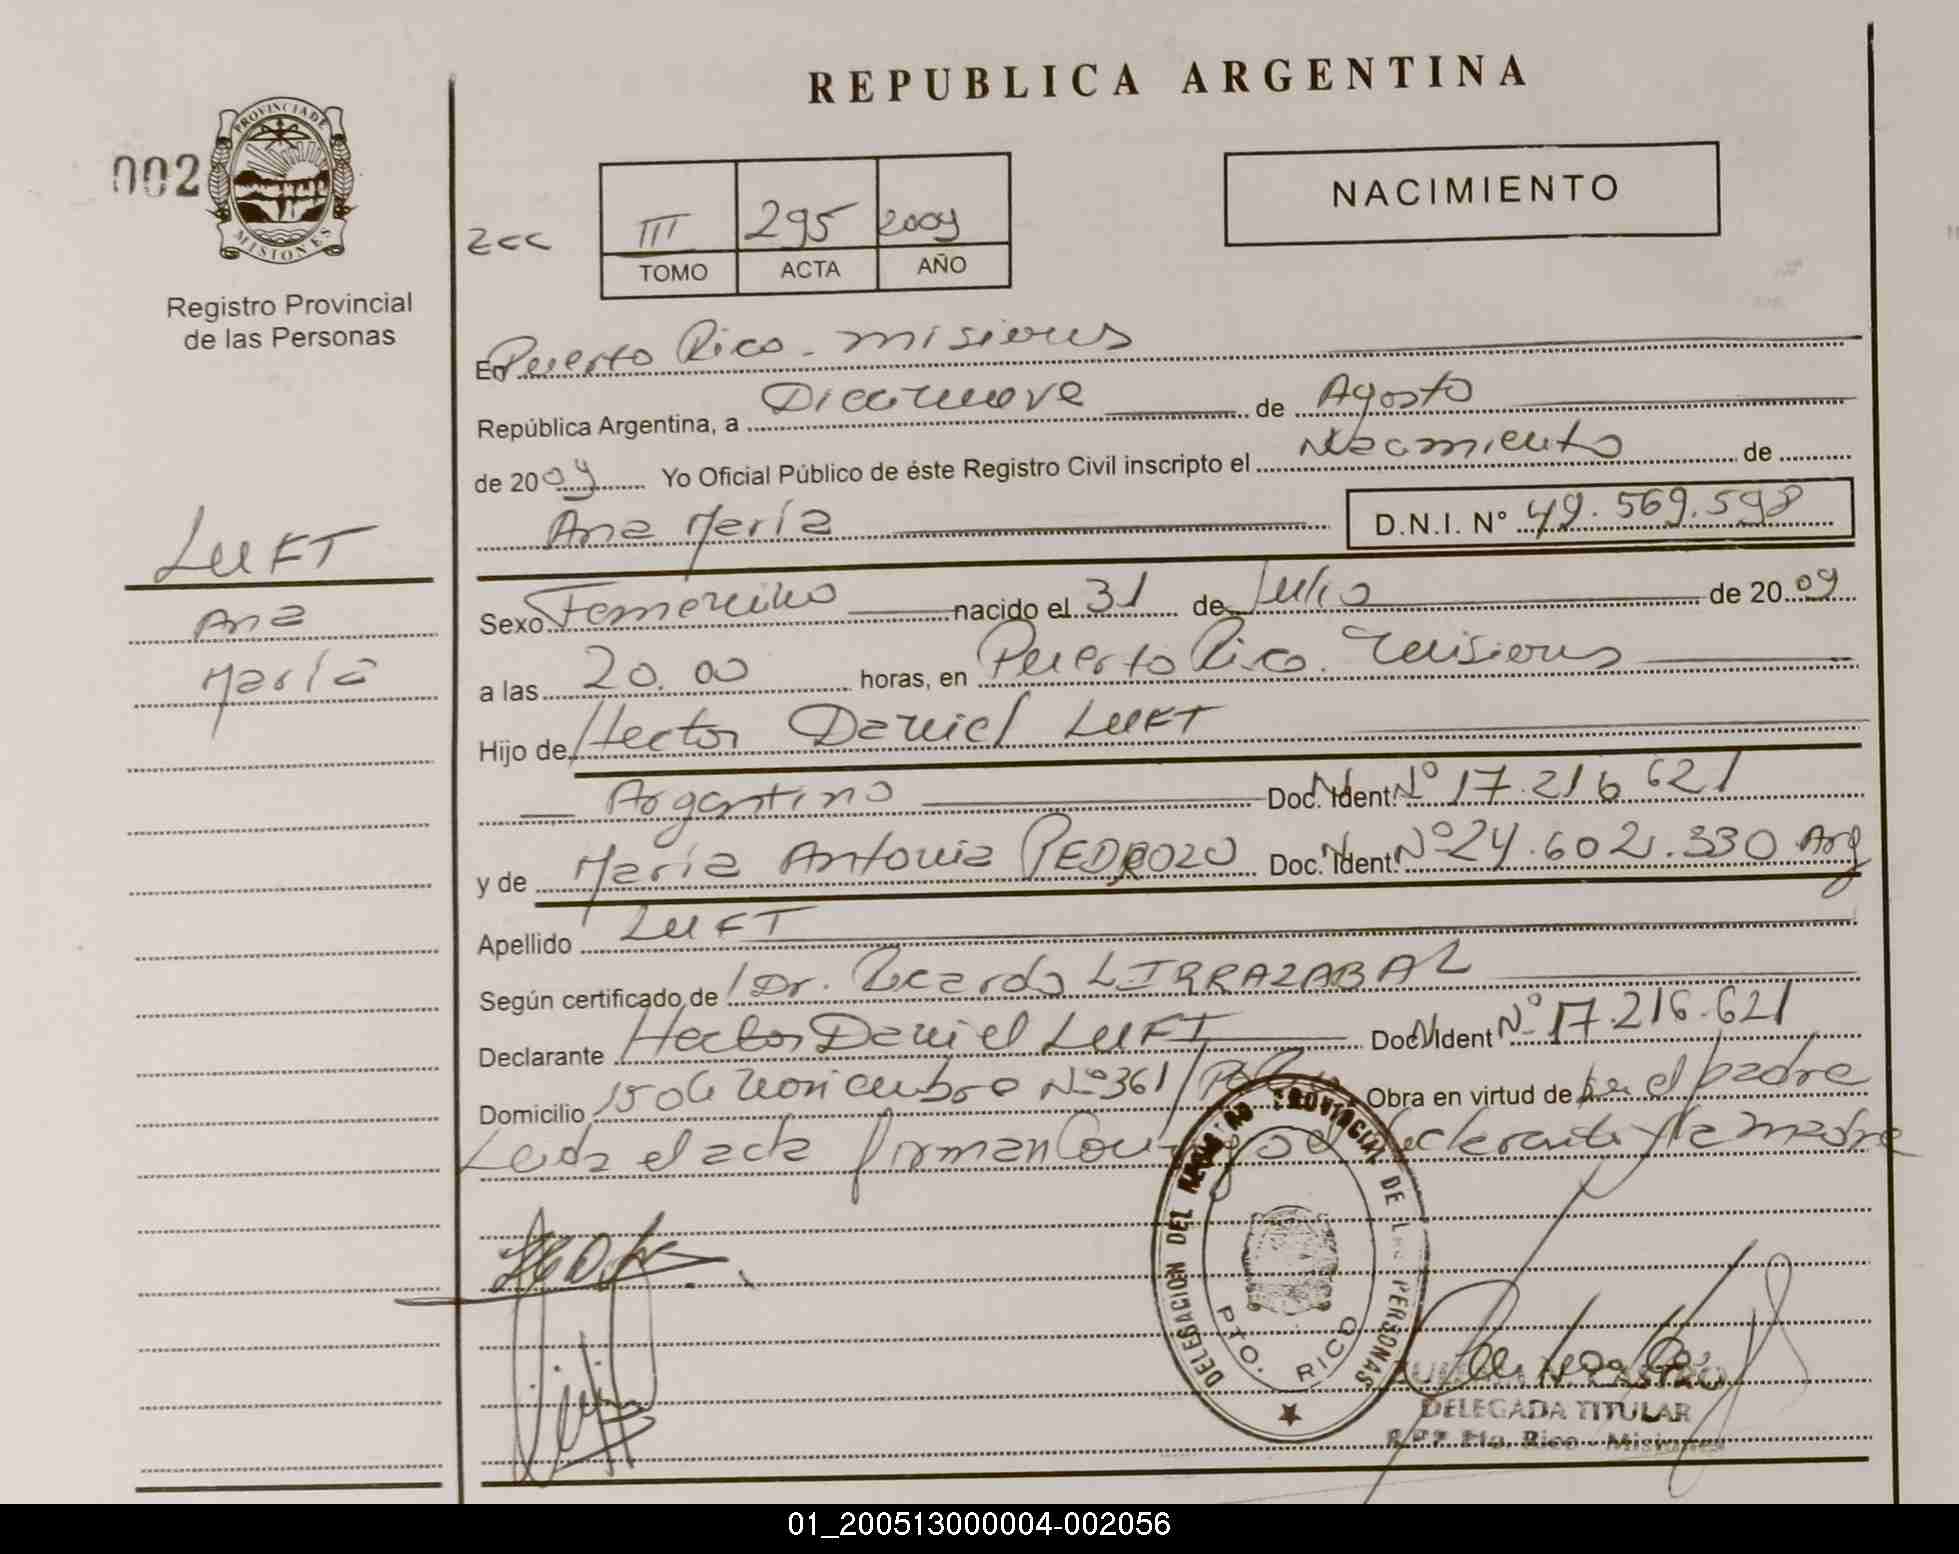 REPUBLICA ARGENTINA
002
PROVINCIA DE
MISIONES
Registro Provincial
de las Personas
NACIMIENTO
2cc
III 295 2009
TOMO ACTA AÑO
En Puerto Rico - Misiones
República Argentina, a Diecinueve de Agosto
de 2009 Yo Oficial Público de éste Registro Civil inscripto el Nacimiento de
Ana María D.N.I. N° 49.569.598
LUFT
Ana
María
Sexo Femenino nacido el 31 de Julio de 2009
a las 20.00 horas, en Puerto Rico. Misiones
Hijo de Hector Daniel LUFT
Argentino Doc. Ident. N° 17.216.621
y de María Antonia PEDROZO Doc. Ident. N° 24.602.330 Arg
Apellido LUFT
Según certificado de Dr. Ricardo LIRRAZABAL
Declarante Hector Daniel LUFT Doc Ident N° 17.216.621
Domicilio 15 de Noviembre N° 361 Obra en virtud de ser el padre
Leida el acta firman conmigo el declarante y la madre
DELEGACION DEL REGISTRO PROVINCIAL DE LAS PERSONAS
PTO. RICO
N. CASTRO
DELEGADA TITULAR
R.P.P. Pto. Rico - Misiones
01_200513000004-002056